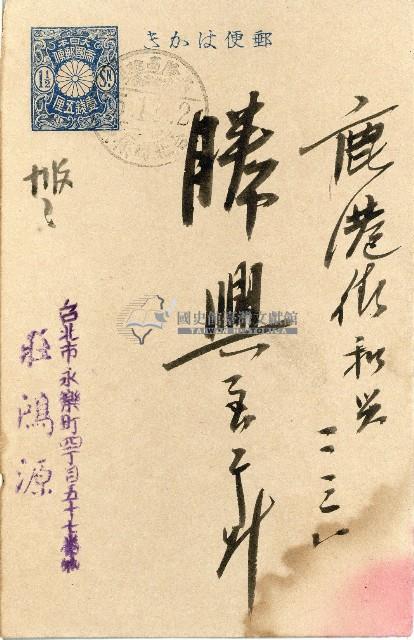 郵便はかき
大日本
帝國郵便
1½ SN
壹錢五厘
鹿港街和興
二三八
勝興
台北市永樂町四丁目五十七番地
莊鴻源
國史館臺灣文獻館
TAIWAN HISTORICA